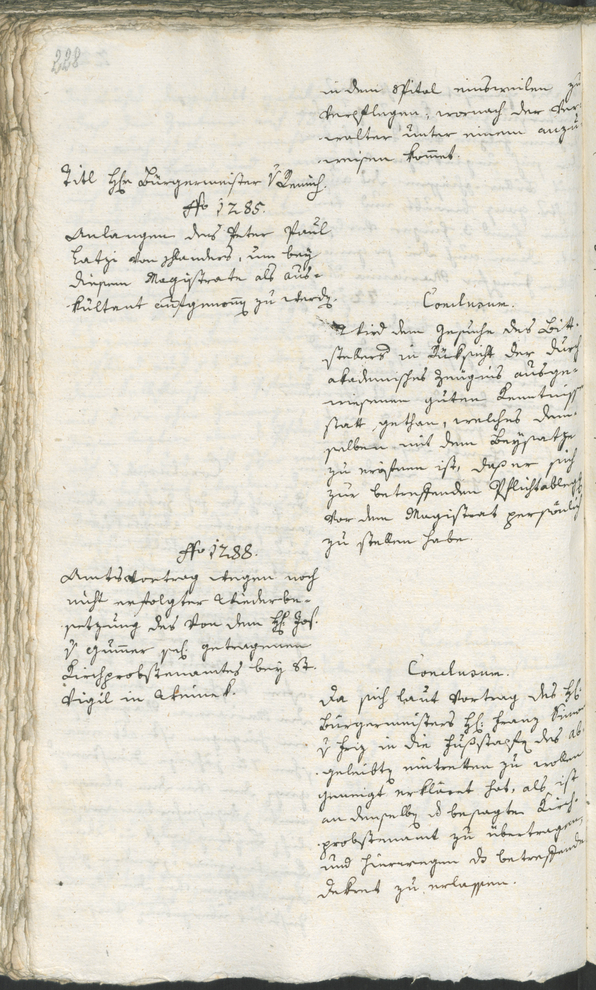 228
in dem Spital einsweilen zu
verpflegen, wornach der Ver-
walter unter einem anzu-
weisen kommt.
Titl Hr Bürgermeister
No 1285.
Anlangen des Peter Paul
Latzi von Schlanders, um bey
diesem Magistrate als Aus-
kultant aufgenomen zu werden.
Conclusum.
Wird dem Gesuche des Bitt-
stellers in Rücksicht der durch
akademisches Zeugnis ausge-
wiesenen guten Kenntnisse
statt gethan, welches dem-
selben mit dem Beysatze
zu eröfnen ist, daß er sich
zur betreffenden Pflichtablegung
vor dem Magistrat persönlich
zu stellen habe.
No 1288.
Amtsvortrag wegen noch
nicht erfolgter Wiederbe-
setzung des von dem H: Jos.
v Gumer sel. getragenen
Kirchprobstenamtes bey St.
Vigil in
Conclusum.
Da sich laut Vortrag des H:
Bürgermeisters H: Franz
v in die Fußstapfen des ab-
geleibten eintretten zu wollen
geneigt erkläret hat, als ist
an denselben besagte Kirch-
probstenamt zu übertragen
und hierwegen das betreffende
Dekret zu erlassen.